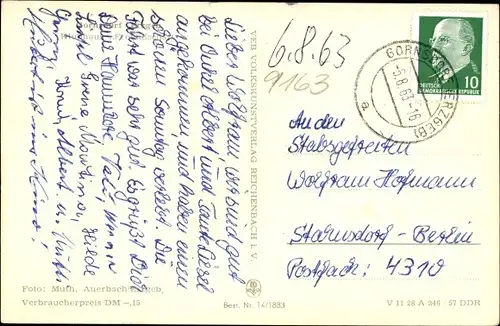 Lieber Wolfram, wir sind gut
bei Onkel Albert und Tante Liesel
angekommen, und haben einen
schönen Sonntag verlebt. Die
Fahrt war sehr gut. Es grüßt Dich
Deine Hannelore,
Hilde
Albert u.
VEB VOLKSKUNSTVERLAG REICHENBACH i. V.
6.8.63
9163
GORNSDORF (ERZGEB)
-5.8.63-16
a
DEUTSCHE
DEMOKRATISCHE REPUBLIK
10
An den
Stabsgefreiten
Wolfram Hofmann
Stahnsdorf-Berlin
Postfach: 4310
Foto: Muth, Auerbach/Erzgeb.
Verbraucherpreis DM -,15
Best. Nr. 14/1883
V 11 28 A 246 57 DDR